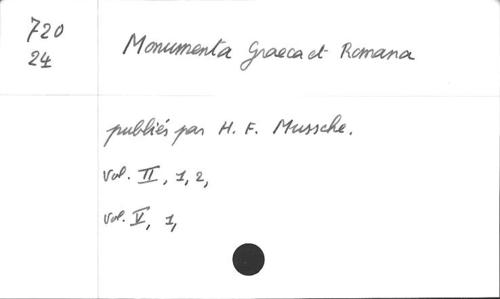 720
24
Monumenta Graeca et Romana
publiés par H. F. Mussche.
vol. II, 1, 2,
vol. V, 1,